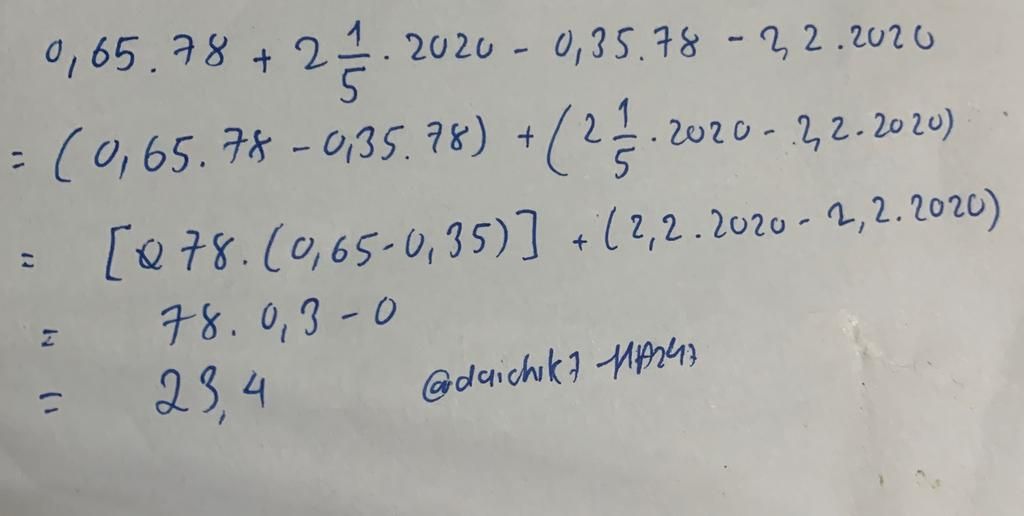 0,65.78 + 2 1/5 . 2020 - 0,35.78 - 2,2.2020
= (0,65.78 - 0,35.78) + (2 1/5 . 2020 - 2,2.2020)
= [78.(0,65-0,35)] + (2,2.2020 - 2,2.2020)
= 78.0,3 - 0
= 23,4